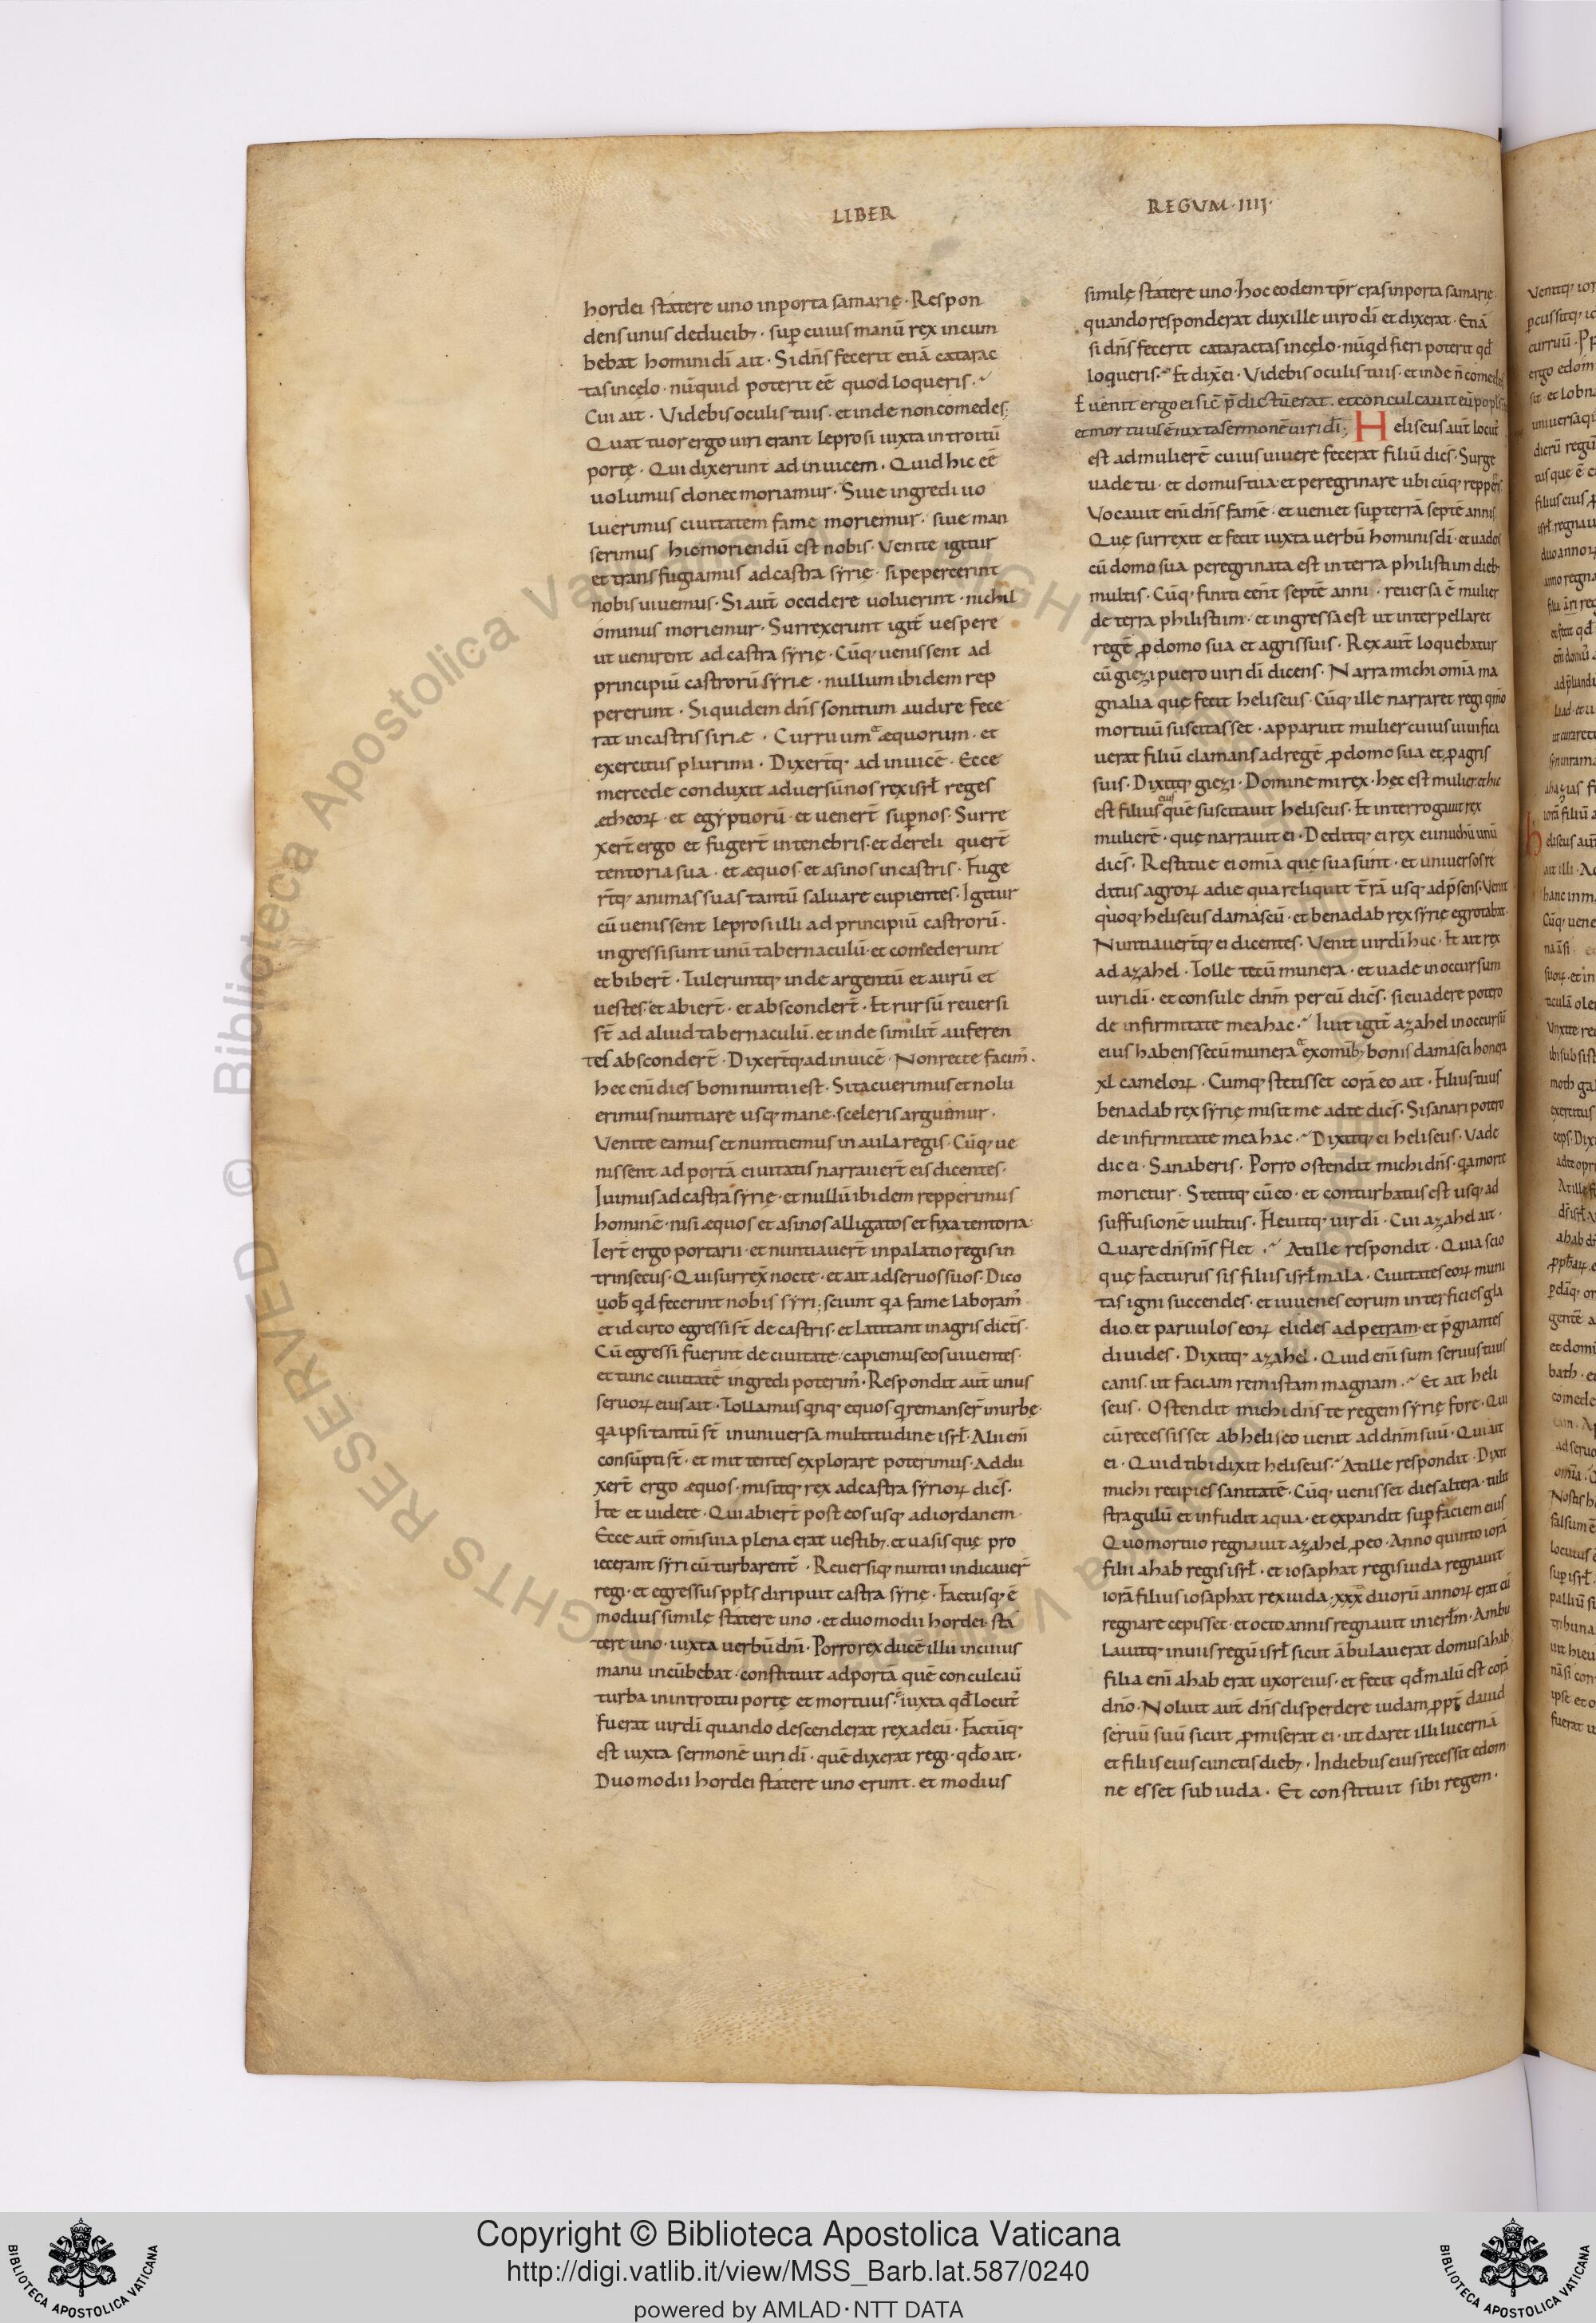 LIBER
REGUM·IIII·
hordei statere uno inporta samarię·Respon
dens unus deducib;· sup̄ cuius manū rex incum
bebat homini dī ait· Si dn̄s fecerit etiā catarac
tas incęlo· nūquid poterit eē quod loqueris·
Cui ait· Videbis oculis tuis· et inde non comedes;
Quattuor ergo uiri erant leprosi iuxta introitū
portę· Qui dixerunt ad inuicem· Quid hic eē
uolumus donec moriamur· Siue ingredi uo
luerimus ciuitatem fame moriemur· siue man
serimus hic moriendū est nobis· Venite igitur
et transfugiamus ad castra syrię· si pepercerint
nobis uiuemus· Si aut̄ occidere uoluerint· nichil
ominus moriemur· Surrexerunt igit̄ uespere
ut uenirent ad castra syrię· Cūq; uenissent ad
principiū castrorū syrię· nullum ibidem rep
pererunt· Siquidem dn̄s sonitum audire fece
rat incastris siriæ· Curruum & æquorum· et
exercitus plurimi· Dixert̄q; ad inuicē· Ecce
mercede conduxit aduersū nos rex isrł reges
ætheoꝝ· et egyptiorū· et uenert̄ sup̄ nos· Surre
xert̄ ergo et fugert̄ intenebris· et dereli quert̄
tentoria sua· et æquos· et asinos incastris· Fuge
rt̄q; animas suas tantū saluare cupientes· Igitur
cū uenissent leprosi illi ad principiū castrorū·
ingressi sunt unū tabernaculū· et comederunt
et bibert̄· Tuleruntq; inde argentū et aurū et
uestes· et abiert̄· et abscondert̄· Et rursū reuersi
st̄ ad aliud tabernaculū· et inde similit̄ auferen
tes abscondert̄· Dixert̄q; ad inuicē· Non recte facim̄·
hec enī dies boni nuntii est· Si tacuerimus et nolu
erimus nuntiare usq; mane· sceleris arguimur·
Venite eamus et nuntiemus in aula regis· Cūq; ue
nissent ad portā ciuitatis narrauert̄ eis dicentes·
Iuimus ad castra syrię· et nullū ibidem repperimus
hominē· nisi æquos et asinos alligatos et fixa tentoria·
Iert̄ ergo portarii· et nuntiauert̄ inpalatio regis in
trinsecus· Qui surrex̄ nocte· et ait ad seruos suos· Dico
uob̄ qd̄ fecerint nobis syri; sciunt qa fame laboram̄
et id circo egressi st̄ de castris· et latitant inagris dict̄s·
Cū egressi fuerint de ciuitate· capiemus eos uiuentes·
et tunc ciuitatē ingredi poterim̄· Respondit aut̄ unus
seruoꝝ eius ait· Tollamus qnq; equos q remanser̄ inurbę·
qa ipsi tantū st̄ inuniuersa multitudine isrł· Alii enī
consūpti st̄· et mittentes explorare poterimus· Addu
xert̄ ergo æquos· misitq; rex ad castra syrioꝝ dicēs·
Ite et uidete· Qui abiert̄ post eos usq; ad iordanem·
Ecce aut̄ omīs uia plena erat uestib;· et uasis quę pro
iecerant syri cū turbarent̄· Reuersiq; nuntii indicauer̄
regi· et egressus ppłs diripuit castra syrię· Factusq; ē
modius similę statere uno· et duo modii hordei· sta
tere uno· iuxta uerbū dn̄i· Porro rex ducē illū incuius
manu incūbebat· constituit ad portā quē conculcau̅
turba inintroitu portę et mortuus ē· iuxta qd̄ locut̄
fuerat uir dī quando descenderat rex ad eū· Factūq;
est iuxta sermonē uiri dī· quē dixerat regi· qdo ait·
Duo modii hordei statere uno erunt· et modius
similę statere uno· hoc eodem tp̄r cras inporta samarię
quando responderat dux ille uiro dī et dixerat· Etiā
si dn̄s fecerit cataractas incęlo· nūqd fieri poterit qd̄
loqueris· Et dix̄ ei· Videbis oculis tuis· et inde n̄ comedes
Euenit ergo ei sic̄ p̄dictū erat· et conculcauit eū popls
et mortuus ē iuxta sermonē uiri dī; Heliseus aut̄ locut̄
est ad mulierē cuius uiuere fecerat filiū dicēs· Surge
uade tu· et domus tua· et peregrinare ubicūq; reppers
Vocauit enī dn̄s famē· et ueniet sup̄ terrā septē annis
Quę surrexit et fecit iuxta uerbū hominis dī· et uadēs
cū domo sua peregrinata est interra philistium dieb;
multis· Cūq; finiti eēnt septē anni· reuersa ē mulier
de terra philistium· et ingressa est ut interpellaret
regē ꝓ domo sua et agris suis· Rex aut̄ loquebatur
cū giezi puero uiri dī dicens· Narra michi omīa ma
gnalia quę fecit heliseus· Cūq; ille narraret regi qmo
mortuū suscitasset· apparuit mulier cuius uiuifica
uerat filiū clamans ad regē ꝓ domo sua et ꝓ agris
suis· Dixitq; giezi· Domine mi rex· hęc est mulier· et hic
est filius eius quē suscitauit heliseus· Et interrogauit rex
mulierē· quę narrauit ei· Deditq; ei rex eunuchū unū
dicēs· Restitue ei omīa quę sua sunt· et uniuersos re
ditus agroꝝ a die qua reliquit t̄rā usq; ad p̄sens· Venit
quoq; heliseus damascū· et benadab rex syrię egrotabat·
Nuntiauert̄q; ei dicentes· Venit uir dī huc· Et ait rex
ad azahel· Tolle tecū munera· et uade inoccursum
uiri dī· et consule dn̄m per eū dicēs· si euadere potero
de infirmitate mea hac· Iuit igit̄ azahel inoccursū
eius habens secū munera & ex omīb; bonis damasci honera
xl cameloꝝ· Cumq; stetisset corā eo ait· Filius tuus
benadab rex syrię misit me ad te dicēs· Si sanari potero
de infirmitate mea hac· Dixitq; ei heliseus· Vade
dic ei· Sanaberis· Porro ostendit michi dn̄s· qa morte
morietur· Stetitq; cū eo· et conturbatus est usq; ad
suffusionē uultus· Fleuitq; uir dī· Cui azahel ait·
Quare dn̄s ms̄ flet· At ille respondit· Quia scio
quę facturus sis filiis isrł mala· Ciuitates eoꝝ muni
tas igni succendes· et iuuenes eorum interficies gla
dio· et paruulos eoꝝ elides ad petram· et p̄gnantes
diuides· Dixitq; azahel· Quid enī sum seruus tuus
canis· ut faciam rem istam magnam· Et ait heli
seus· Ostendit michi dn̄s te regem syrię fore· Qui
cū recessisset ab heliseo uenit ad dn̄m suū· Qui ait
ei· Quid tibi dixit heliseus· At ille respondit· Dixit
michi recipies sanitatē· Cūq; uenisset dies altera· tulit
stragulū et infudit aqua· et expandit sup̄ faciem eius
Quo mortuo regnauit azahel ꝓ eo· Anno quinto iorā
filii ahab regis isrł· et iosaphat regis iuda regnauit
iorā filius iosaphat rex iuda· xxx duorū annoꝝ erat cū
regnare cepisset· et octo annis regnauit in ierłm· Ambu
lauitq; inuiis regū isrł sicut ābulauerat domus ahab
filia enī ahab erat uxor eius· et fecit qd̄ malū est corā
dn̄o· Noluit aut̄ dn̄s disperdere iudam ꝓpt̄ dauid
seruū suū sicut ꝓmiserat ei· ut daret illi lucernā
et filiis eius cunctis dieb;· In diebus eius recessit edom·
ne esset sub iuda· Et constituit sibi regem·
Copyright © Biblioteca Apostolica Vaticana
http://digi.vatlib.it/view/MSS_Barb.lat.587/0240
powered by AMLAD·NTT DATA
BIBLIOTECA APOSTOLICA VATICANA
BIBLIOTECA APOSTOLICA VATICANA
© Biblioteca Apostolica Vaticana ALL RIGHTS RESERVED